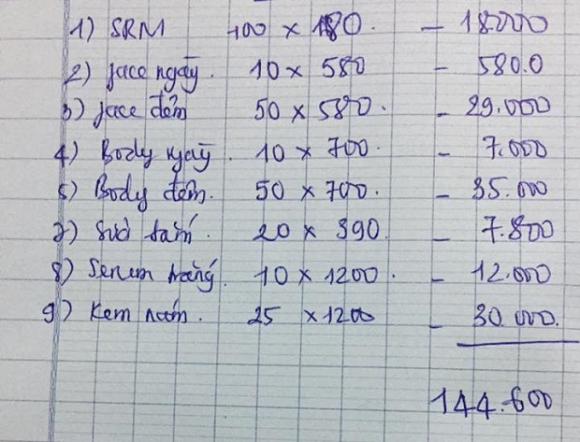 1) SRM 100 x 180. - 18.000
2) face ngày. 10 x 580 - 580.0
3) face đêm 50 x 580. - 29.000
4) Body ngày. 10 x 700. - 7.000
5) Body đêm. 50 x 700. - 35.000
7) Sữa tắm. 20 x 390 - 7.800
8) Serum trắng. 10 x 1200. - 12.000
9) Kem nám. 25 x 1200 - 30.000.
144.600